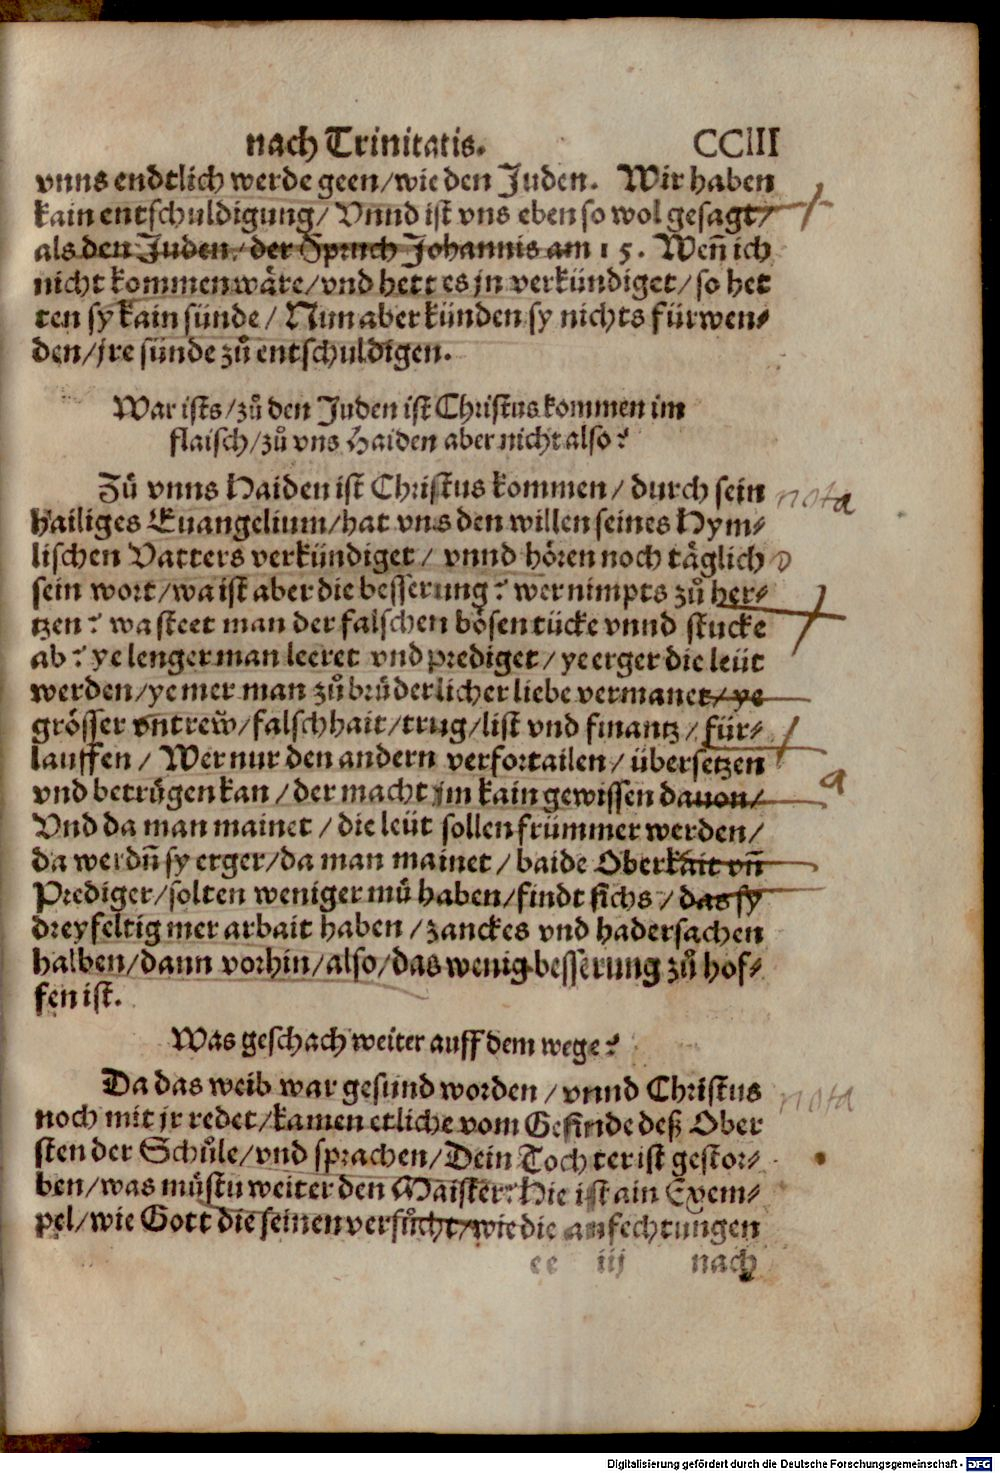 nach Trinitatis. CCIII
vnns endtlich werde geen/wie den Juden. Wir haben
kain entschuldigung/ Vnnd ist vns eben so wol gesagt/
als den Juden/der Spruch Johannis am 15. Weñ ich
nicht kommen wäre/vnd hett es jn verkündiget/so het
ten sy kain sünde/ Nun aber künden sy nichts fürwen⸗
den/jre sünde zů entschuldigen.
War ists/zů den Juden ist Christus kommen im
flaisch/zů vns Haiden aber nicht also?
Zů vnns Haiden ist Christus kommen/ durch sein
nota
hailiges Euangelium/hat vns den willen seines Hym⸗
lischen Vatters verkündiget/ vnnd hören noch täglich
sein wort/wa ist aber die besserung? wer nimpts zů her⸗
tzen? wa steet man der falschen bösen tücke vnnd stucke
ab? ye lenger man leeret vnd prediget/ ye erger die leüt
werden/ye mer man zů brůderlicher liebe vermanet/ye
grösser vntreẅ/falschhait/trug/list vnd finantz/ für⸗
lauffen/ Wer nur den andern verfortailen/ übersetzen
vnd betrügen kan/der macht jm kain gewissen dauon/
Vnd da man mainet/die leüt sollen frümmer werden/
da werdñ sy erger/da man mainet/ baide Oberkait vñ
Prediger/solten weniger mů haben/findt sichs/ das sy
dreyfeltig mer arbait haben/zanckes vnd hadersachen
halben/dann vorhin/also/das wenig besserung zů hof⸗
fen ist.
Was geschach weiter auff dem wege?
Da das weib war gesund worden/ vnnd Christus
nota
noch mit jr redet/kamen etliche vom Gesinde deß Ober
sten der Schůle/vnd sprachen/Dein Tochter ist gestor⸗
ben/was můstu weiter den Maister? Hie ist ain Exem⸗
pel/wie Gott die seinen versůcht/wie die anfechtungen
ee iij nach
Digitalisierung gefördert durch die Deutsche Forschungsgemeinschaft - DFG